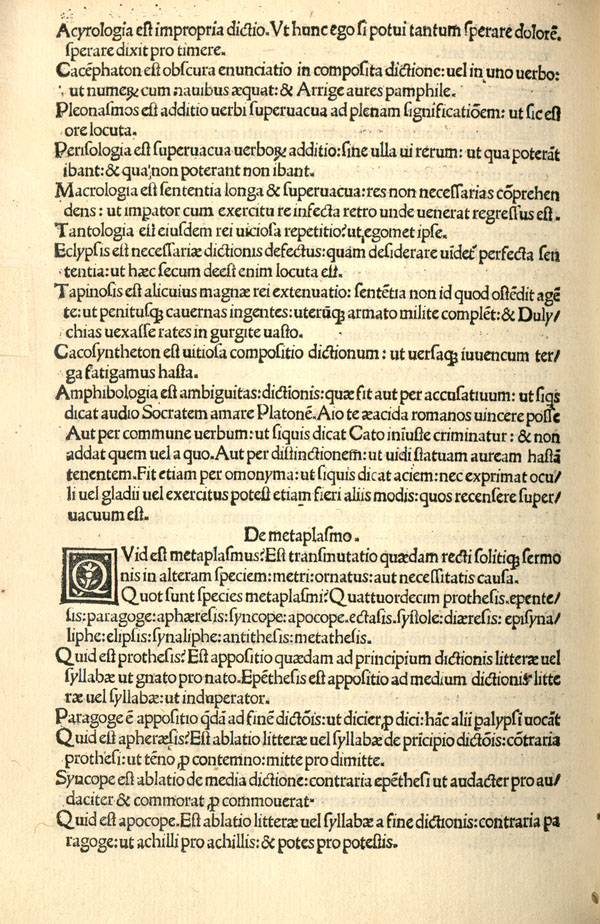 Acyrologia est impropria dictio. Vt hunc ego si potui tantum sperare dolorē.
sperare dixit pro timere.
Cacēphaton est obscura enunciatio in composita dictione: uel in uno uerbo:
ut numeꝝ cum nauibus æquat: & Arrige aures pamphile.
Pleonasmos est additio uerbi superuacua ad plenam significatiōem: ut sic est
ore locuta.
Perisologia est superuacua uerboꝝ additio: sine ulla ui rerum: ut qua poterāt
ibant: & qua non poterant non ibant.
Macrologia est sententia longa & superuacua: res non necessarias cōprehen
dens: ut impator cum exercitu re infecta retro unde uenerat regressus est.
Tantologia est eiusdem rei uiciosa repetitio? ut egomet ipse.
Eclypsis est necessariæ dictionis defectus: quam desiderare uidet perfecta sen
tentia: ut hæc secum deest enim locuta est.
Tapinosis est alicuius magnæ rei extenuatio: sentētia non id quod ostēdit agē
te: ut penitusqꝫ cauernas ingentes: uterūqꝫ armato milite complēt: & Duly/
chias uexasse rates in gurgite uasto.
Cacosyntheton est uitiosa compositio dictionum: ut uersaqꝫ iuuencum ter/
ga fatigamus hasta.
Amphibologia est ambiguitas: dictionis: quæ fit aut per accusatiuum: ut siqs
dicat audio Socratem amare Platonē. Aio te æacida romanos uincere posse
Aut per commune uerbum: ut siquis dicat Cato iniuste criminatur: & non
addat quem uel a quo. Aut per distinctionem: ut uidi statuam auream hastā
tenentem. Fit etiam per omonyma: ut siquis dicat aciem: nec exprimat ocu/
li uel gladii uel exercitus potest etiam fieri aliis modis: quos recensere super/
uacuum est.
De metaplasmo.
QVid est metaplasmus? Est transmutatio quædam recti solitiqꝫ sermo
nis in alteram speciem: metri: ornatus: aut necessitatis causa.
Quot sunt species metaplasmi? Quattuordecim prothesis. epente/
sis: paragoge: aphæresis: syncope: apocope. ectasis. systole: diæresis: episyna/
liphe: elipsis: synaliphe: antithesis: metathesis.
Quid est prothesis? Est appositio quædam ad principium dictionis litteræ uel
syllabæ ut gnato pro nato. Epēthesis est appositio ad medium dictionis litte
ræ uel syllabæ: ut induperator.
Paragoge ē appositio qdā ad finē dictōis: ut dicier ꝓ dici: hāc alii palypsi uocāt
Quid est apheræsis? Est ablatio litteræ uel syllabæ de prīcipio dictōis: cōtraria
prothesi: ut tēno ꝓ contemno: mitte pro dimitte.
Syncope est ablatio de media dictione: contraria epēthesi ut audacter pro au/
daciter & commorat ꝓ commouerat.
Quid est apocope. Est ablatio litteræ uel syllabæ a fine dictionis: contraria pa
ragoge: ut achilli pro achillis: & potes pro potestis.